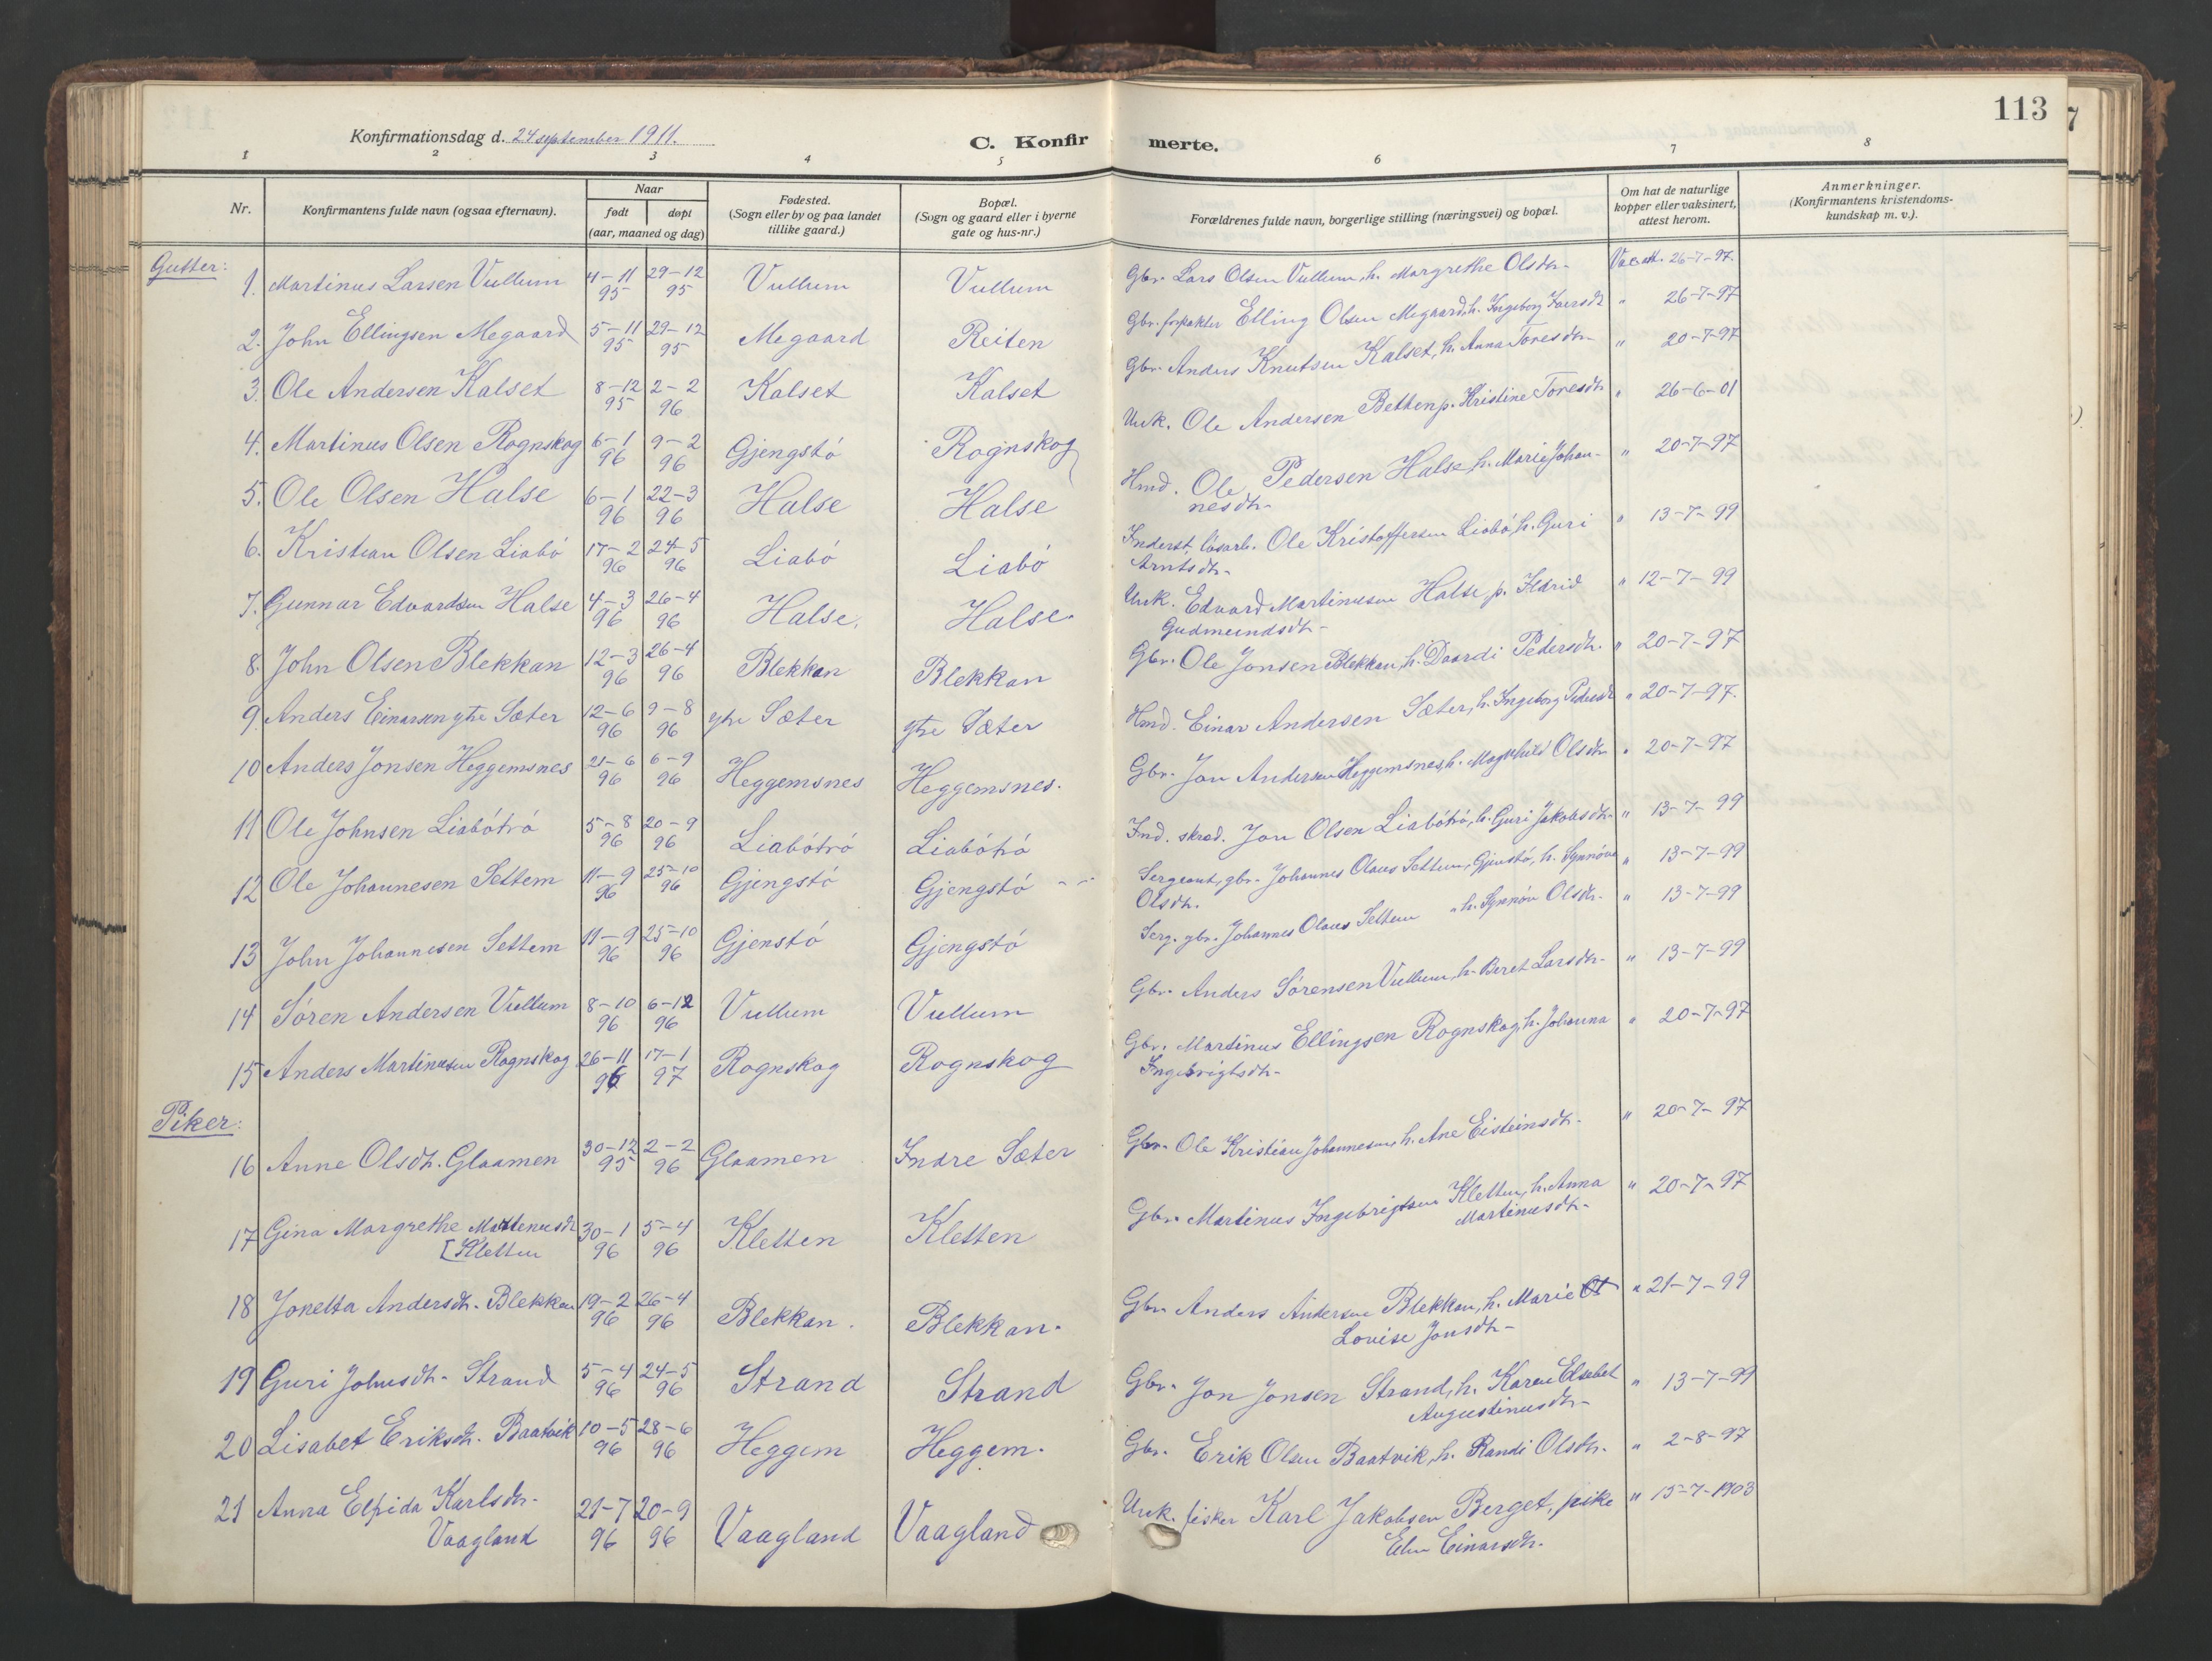 113
Konfirmationsdag d. 24 september 1911.
C. Konfirmerte.
1 2 3 4 5 6 7 8
Nr.
Konfirmantens fulde navn (ogsaa efternavn).
Naar
født døpt
(aar, maaned og dag)
Fødested.
(Sogn eller by og paa landet
tillike gaard.)
Bopæl.
(Sogn og gaard eller i byerne
gate og hus-nr.)
Forældrenes fulde navn, borgerlige stilling (næringsvei) og bopæl.
Om hat de naturlige
kopper eller vaksinert,
attest herom.
Anmerkninger.
(Konfirmantens kristendoms-
kundskap m. v.).
Gutter:
1. Martinus Larsen Vullum 4-11 95 29-12 95 Vullum Vullum Gbr. Lars Olsen Vullum, h. Margrethe Olsdtr. 26-7-97.
2. John Ellingsen Megaard 5-11 95 29-12 95 Megaard Reiten Gbr. forpakter Elling Olsen Megaard, h. Ingeborg " 26-7-97
3. Ole Andersen Kalset 8-12 95 2-2 96 Kalset Kalset Gbr. Anders Knutsen Kalset, h. Anna Toresdtr. " 20-7-97
4. Martinus Olsen Rognskog 6-1 96 9-2 96 Gjengstó Rognskog Unk. Ole Andersen Betten p. Kristine Toresdtr " 26-6-01
5. Ole Olsen Halse 6-1 96 22-3 96 Halse Halse Hmd. Ole Pedersen Halse h. Marie Johan-
nesdtr. " 20-7-97
6. Kristian Olsen Liabó 17-2 96 24-5 96 Liabó Liabó Inderst, lósarb. Ole Kristoffersen Liabó, h. Guri
Arntsdtr. " 13-7-99
7. Gunnar Edvardsen Halse 4-3 96 26-4 96 Halse. Halse. Unk. Edvard Martinusen Halse p. Ildrid
Gudmundsdtr. " 12-7-99
8. John Olsen Blekkan 12-3 96 26-4 96 Blekkan Blekkan Gbr. Ole Jonsen Blekkan, h. Daardi Pedersdtr. " 20-7-97
9. Anders Einarsen ytre Sæter 12-6 96 9-8 96 ytre Sæter ytre Sæter Hmd. Einar Andersen Sæter, h. Ingeborg Pedersdtr " 20-7-97.
10 Anders Jonsen Heggemsnes 21-6 96 6-9 96 Heggemsnes Heggemsnes. Gbr. Jon Andersen Heggemsnes, h. Magnhild Olsdtr " 20-7-97
11 Ole Johnsen Liabótró 5-8 96 20-9 96 Liabótró Liabótró Ind. skræd. Jon Olsen Liabótró, h. Guri Jakobsdtr. " 13-7-99
12 Ole Johannesen Settem 11-9 96 25-10 96 Gjengstó Gjengstó Sergeant, gbr. Johannes Olaus Settem, Gjenstó, h. Synnóve
Olsdtr. " 13-7-99
13 John Johannesen Settem 11-9 96 25-10 96 Gjenstó Gjengstó Serg. gbr. Johannes Olaus Settem " h. Synnóv Olsdtr. " 13-7-99
14 Sóren Andersen Vullum 8-10 96 6-12 96 Vullum Vullum Gbr. Anders Sórensen Vullum, h. Beret Larsdtr. " 13-7-99
15 Anders Martinusen Rognskog 26-11 96 17-1 97 Rognskog Rognskog Gbr. Martinus Ellingsen Rognskog, h. Johanna
Ingebrigtsdtr. " 20-7-97
Piker:
16 Anne Olsdtr. Glaamen 30-12 95 2-2 96 Glaamen Indre Sæter Gbr. Ole Kristian Johannesen, h. Ane Eisteinsdtr. " 20-7-97
17 Gina Margrethe Martinusdtr
[Kletten 30-1 96 5-4 96 Kletten Kletten Gbr. Martinus Ingebrigtsen Kletten, h. Anna
Martinusdtr. " 20-7-97
18 Jonetta Andersdtr. Blekkan 19-2 96 26-4 96 Blekkan. Blekkan. Gbr. Anders Andersen Blekkan, h. Marie
Lovise Jonsdtr. " 21-7-99
19 Guri Johnsdtr. Strand 5-4 96 24-5 96 Strand Strand Gbr. Jon Jonsen Strand, h. Karen Elsebet
Augustinusdtr. " 13-7-99
20 Lisabet Eriksdtr. Baatvik 10-5 96 28-6 96 Heggem Heggem. Gbr. Erik Olsen Baatvik, h. Randi Olsdtr. " 2-8-97
21 Anna Elfrida Karlsdtr.
Vaagland 21-7 96 20-9 96 Vaagland Vaagland Unk. fisker Karl Jakobsen Berget, pike
Einarsdtr. " 15-7-1903